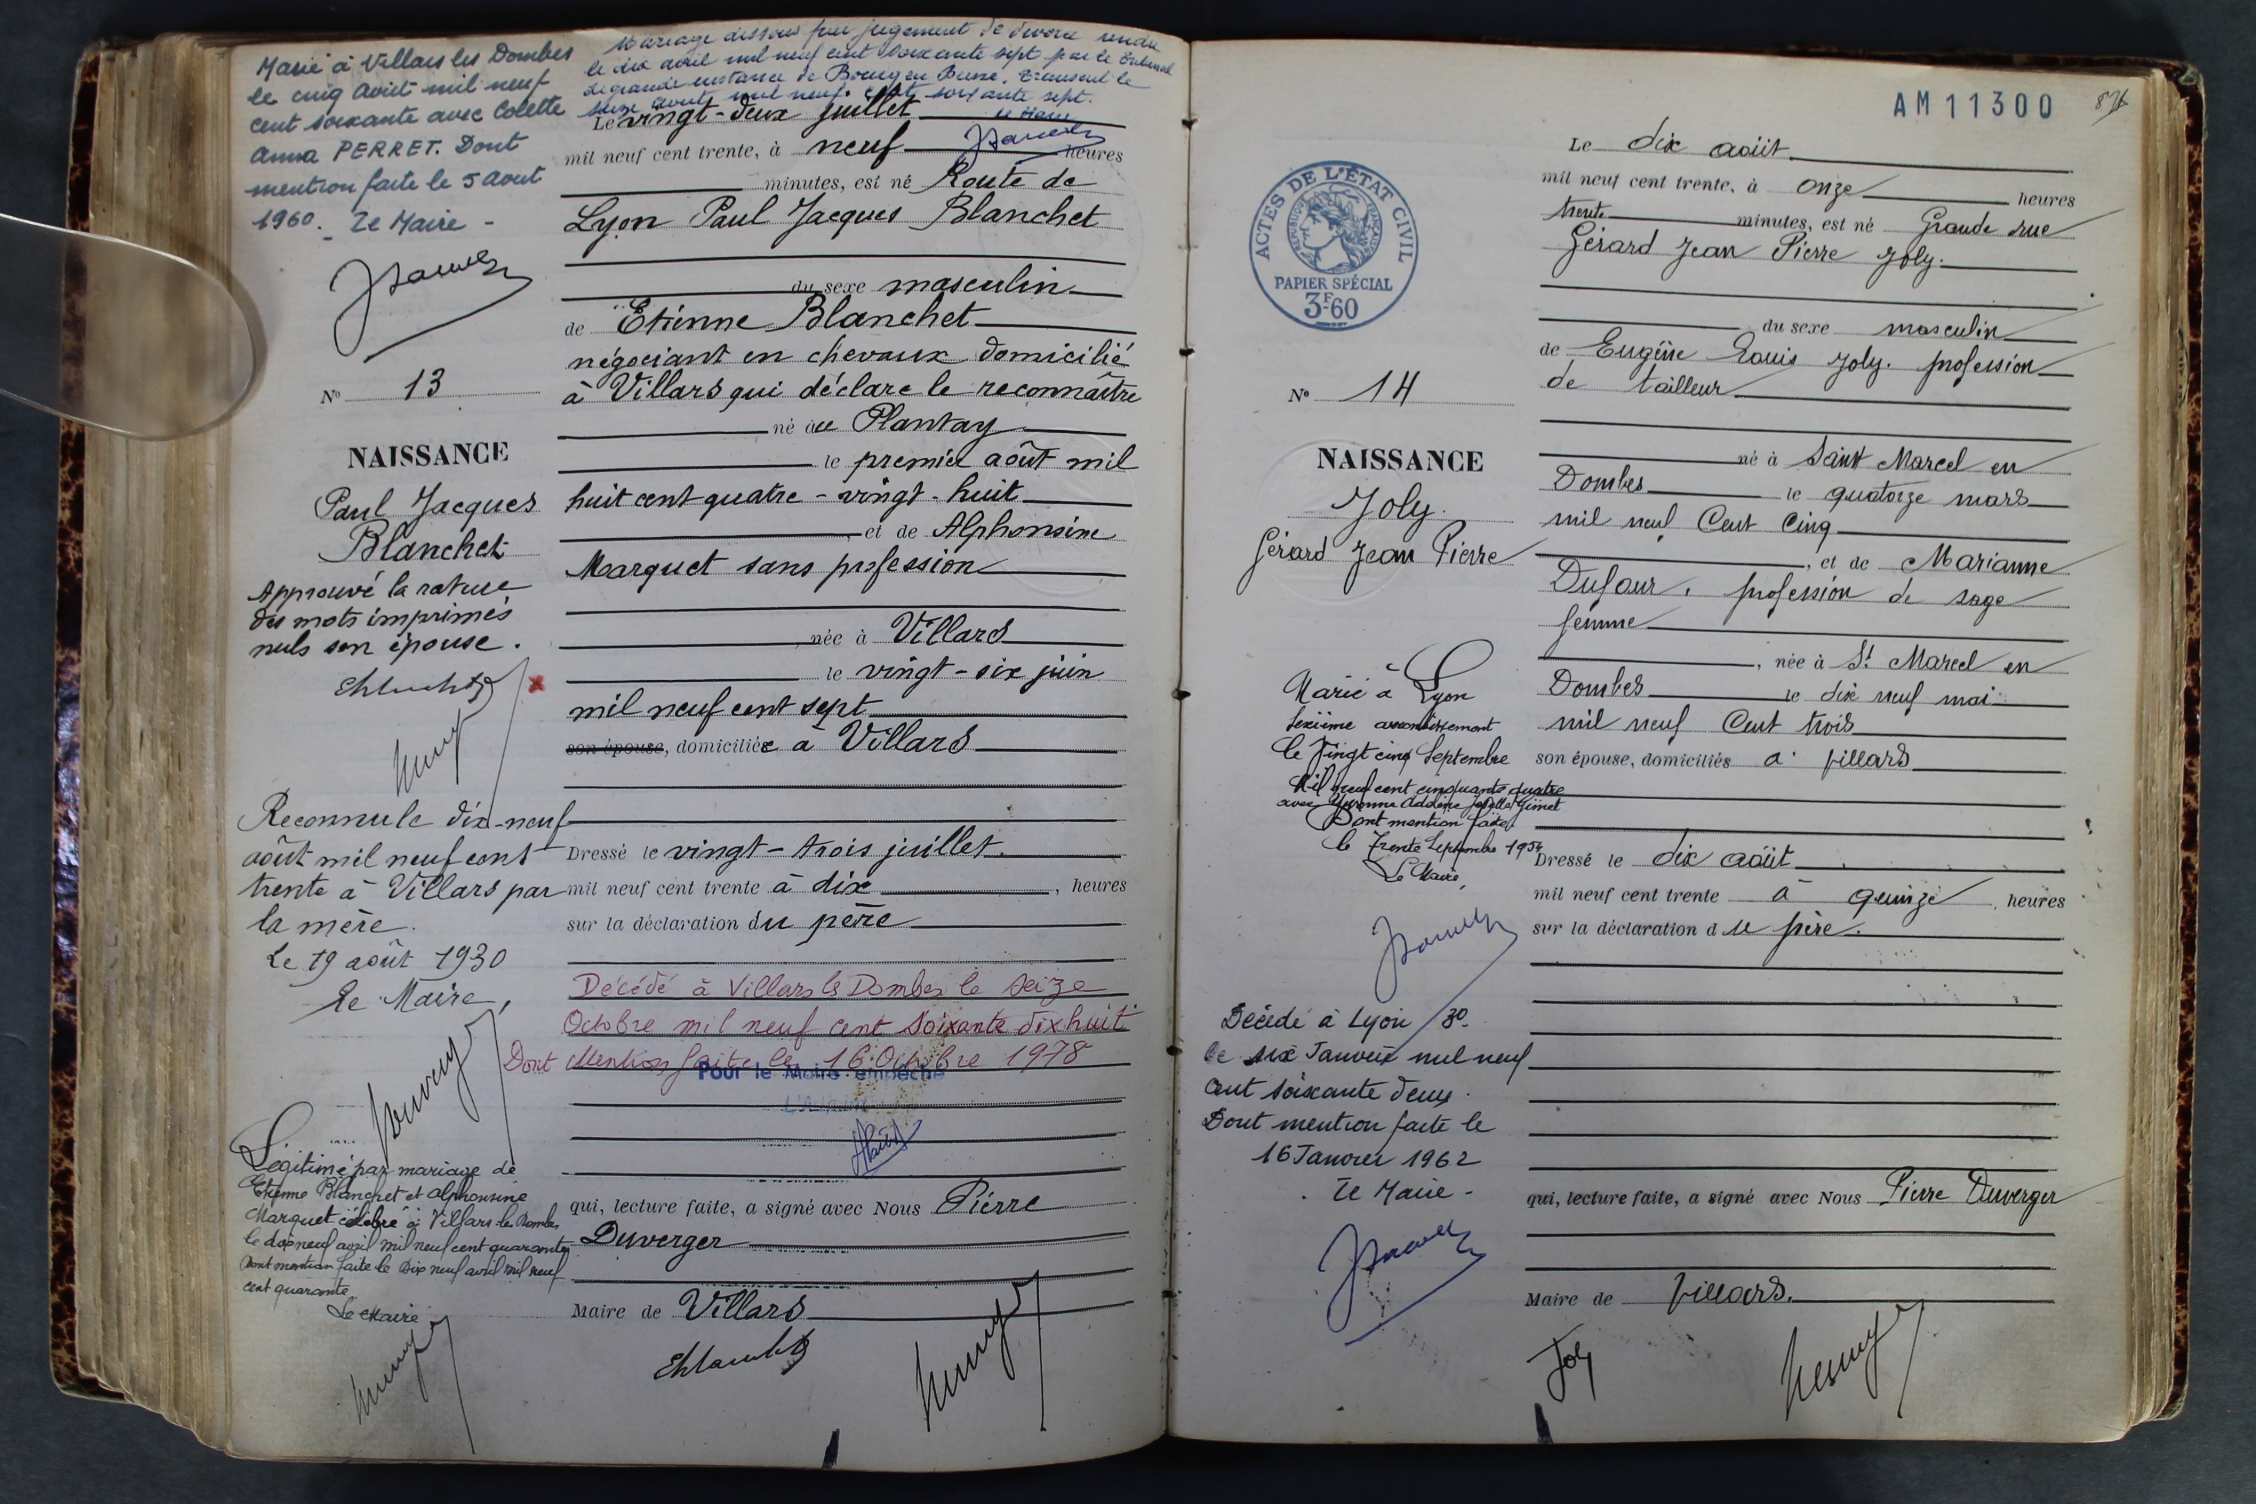 Marié à Villars les Dombes
le cinq Août mil neuf
cent soixante avec Colette
Anna PERRET. Dont
mention faite le 5 Aout
1960. Le Maire -
N° 13
NAISSANCE
Paul Jacques
Blanchet
Approuvé la rature
des mots imprimés
nuls son épouse.
Reconnu le dix-neuf
août mil neuf cent
trente à Villars par
la mère.
Le 19 août 1930
Le Maire,
Légitimé par mariage de
Etienne Blanchet et Alphonsine
Marquet célébré à Villars les Dombes
le dix neuf avril mil neuf cent quarante
Dont mention faite le Dix neuf avril mil neuf
cent quarante
Le Maire
Mariage dissous par jugement de divorce rendu
le dix avril mil neuf cent soixante sept par le Tribunal
de grande instance de Bourg en Bresse. Transcrit le
seize Août mil neuf cent soixante sept.
Le Maire
Le vingt-deux juillet
mil neuf cent trente, à neuf heures
minutes, est né Route de
Lyon Paul Jacques Blanchet
du sexe masculin
de Etienne Blanchet
négociant en chevaux domicilié
à Villars qui déclare le reconnaître
né au Plantay
le premier août mil
huit cent quatre-vingt-huit
, et de Alphonsine
Marquet sans profession
née à Villars
le vingt-six juin
mil neuf cent sept
son épouse, domiciliée à Villars
Dressé le vingt-trois juillet
mil neuf cent trente à dix , heures
sur la déclaration du père
Décédé à Villars les Dombes le seize
Octobre mil neuf cent soixante dix huit
Dont Mention faite le 16 Octobre 1978
Pour le Maire empêché
qui, lecture faite, a signé avec Nous Pierre
Duverger
Maire de Villars
AM11300
ACTES DE L'ÉTAT CIVIL
RÉPUBLIQUE FRANÇAISE
PAPIER SPÉCIAL
3F60
N° 14
NAISSANCE
Joly
Gérard Jean Pierre
Marié à Lyon
sixième arrondissement
le Vingt cinq Septembre
Mil neuf cent cinquante quatre
avec Yvonne
Dont mention faite
le Trente Septembre 1954
Le Maire,
Décédé à Lyon 3e
le six Janvier mil neuf
cent soixante deux.
Dont mention faite le
16 Janvier 1962
Le Maire -
Le dix août
mil neuf cent trente, à onze heures
trente minutes, est né Grande rue
Gérard Jean Pierre Joly.
du sexe masculin
de Eugène Louis Joly. profession
de tailleur
né à Saint Marcel en
Dombes le quatorze mars
mil neuf Cent Cinq
, et de Marianne
Dufour, profession de sage
femme
, née à St Marcel en
Dombes le dix neuf mai
mil neuf Cent trois
son épouse, domiciliés à Villars
Dressé le dix août
mil neuf cent trente à quinze heures
sur la déclaration du père.
qui, lecture faite, a signé avec Nous Pierre Duverger
Maire de Villars.
Joly